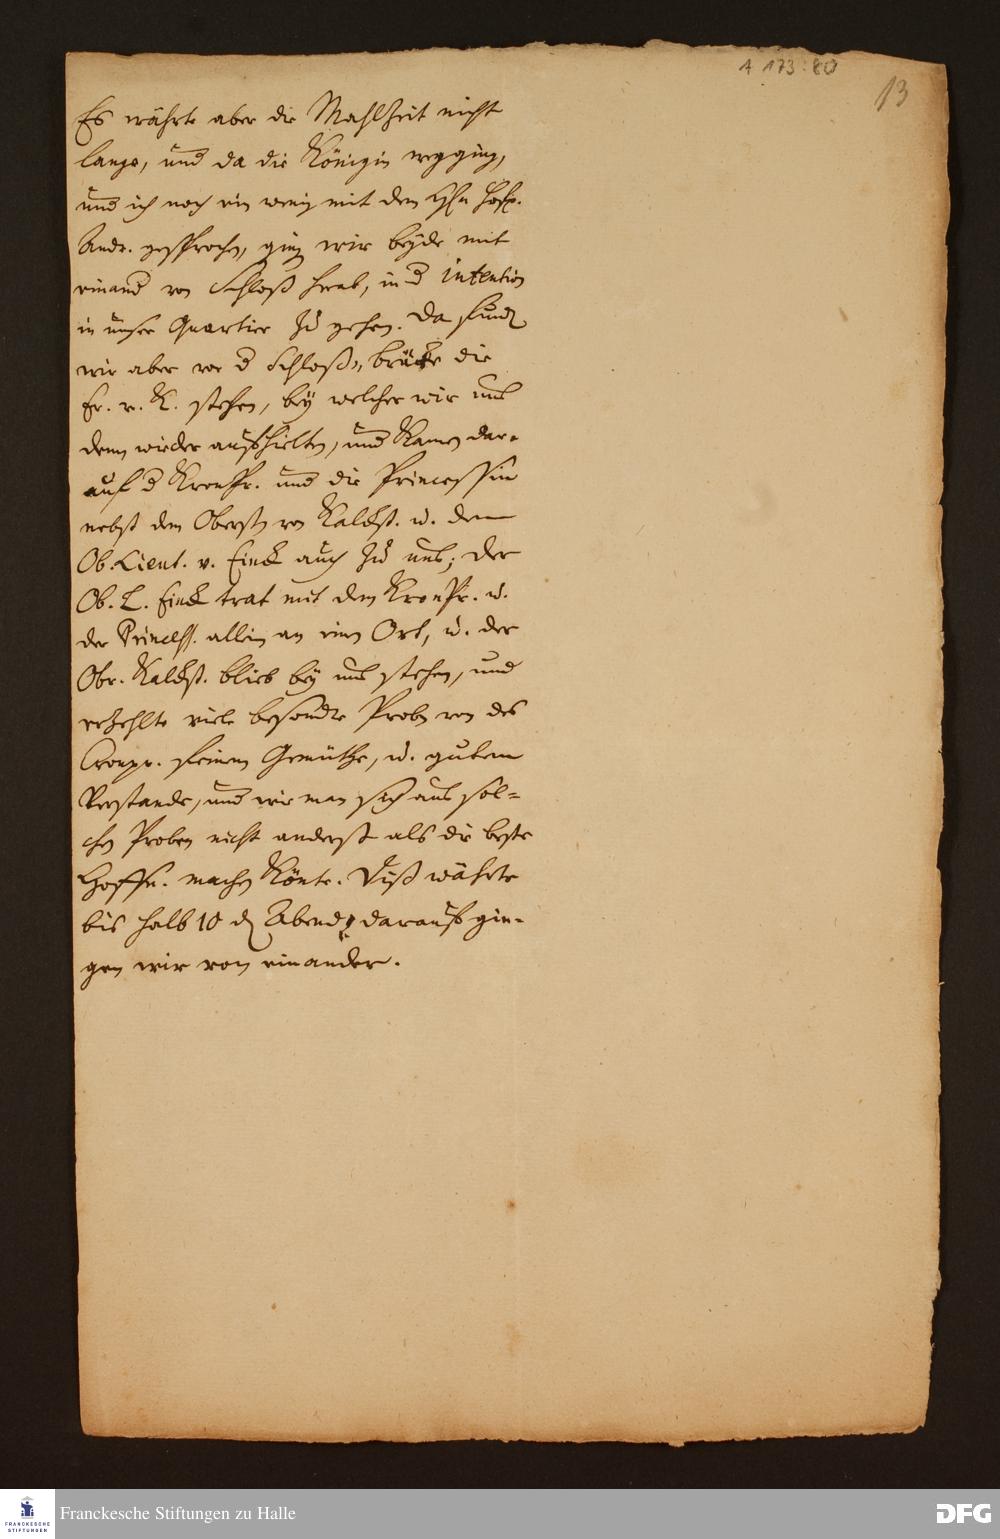 A 173:80
13
Es währte aber die Mahlzeit nicht
lange, und da die Königin wegging,
und ich noch ein wenig mit dem Hln Hofpr.
Andr. gesprochen, ging wir beyde mit
einand von Schloß herab, in d intention
in unser Quartier zu gehen. Da fundn
wir aber vor d Schloß„brücke die
Fr. v. K. stehen, bey welcher wir uns
denn wieder aufhielten, und kamen dar-
auf d KronPr. und die Princessin
nebst dem Oberstn von Kalckst. u. dem
Ob. Lieut. v. Finck auch zu uns; der
Ob. L. Finck trat mit dem KronPr. u.
der Princess. allein an einen Ort, u. der
Obr. Kalckst. blieb bey uns stehen, und
erzehlte viele besondre Probn von des
Cronpr. feinem Gemüthe, u. gutem
Verstande, und wie man sich aus sol=
chen Proben nicht anderst als die beste
Hoffn. machen könte. Diß währte
bis halb 10 des Abends; darauf gin-
gen wir von einander.
Franckesche Stiftungen zu Halle
FRANCKESCHE
STIFTUNGEN
DFG